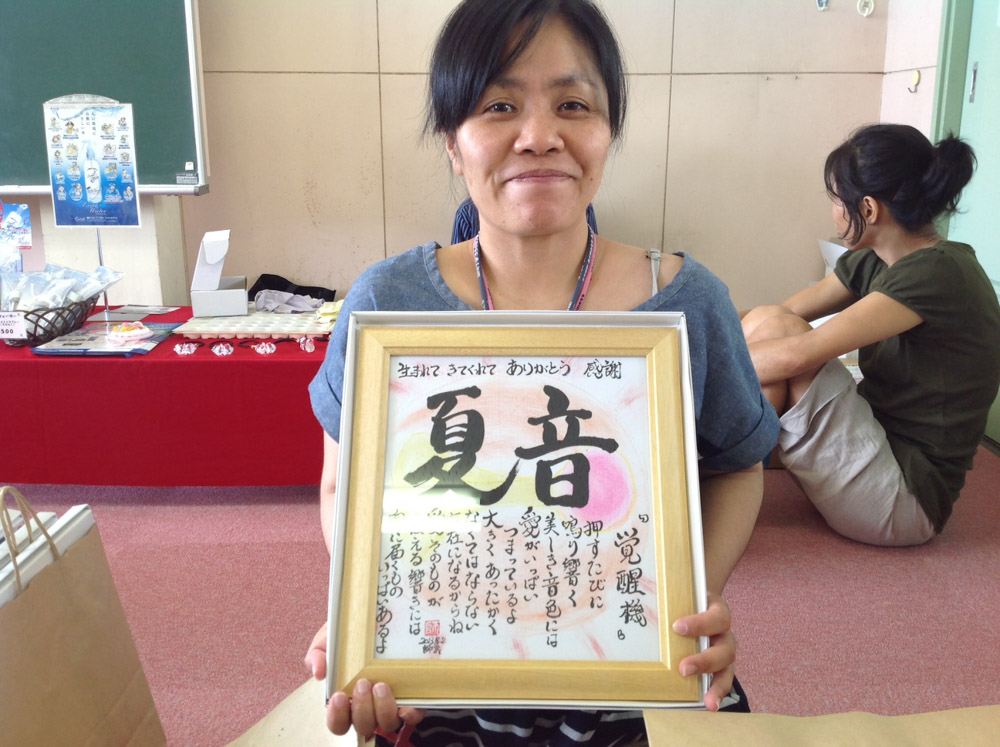 生まれて きてくれて ありがとう 感謝
夏音
『覚醒機』
押すたびに
鳴り響く
美しき音色には
愛がいっぱい
つまっているよ
大きく あったかく
なくてはならない
在になるからね
そのものが
える響きには
に届くもの
いっぱいあるよ
500